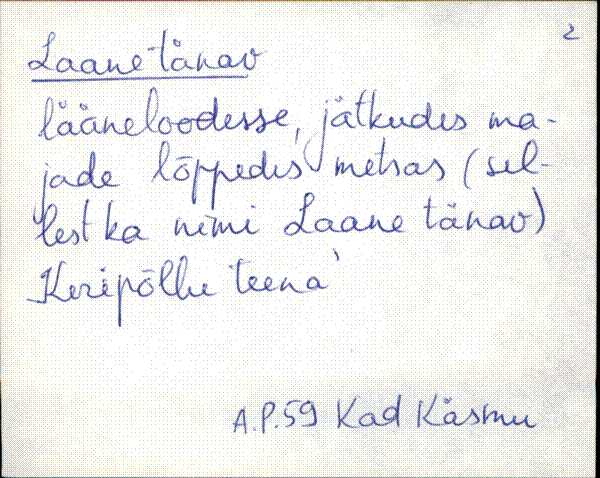 2
Laane tänav
lääneloodesse, jätkudes ma-
jade lõppedes metsas (sel-
lest ka nimi Laane tänav)
Keripõllu teena'
A.P.59 Kad Käsmu